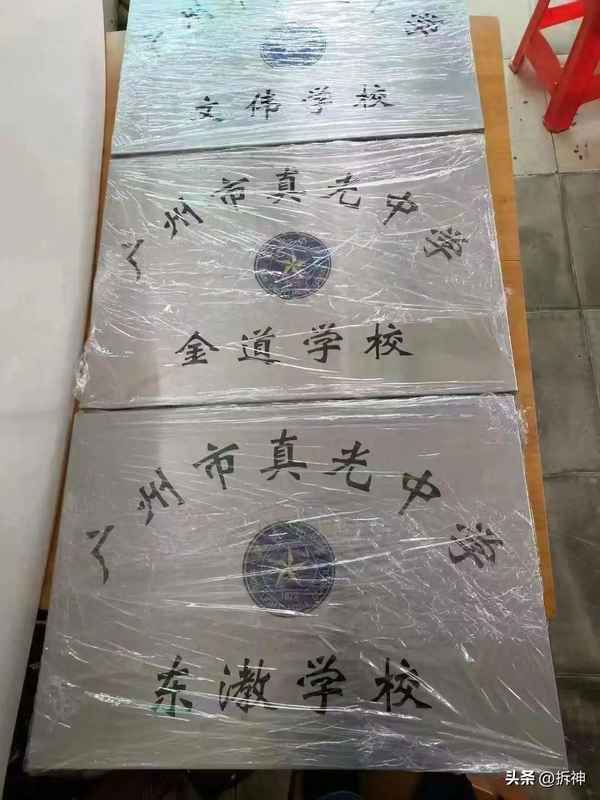 文伟学校
广州市真光中学
金道学校
广州市真光中学
1872
东漖学校
头条 @拆神